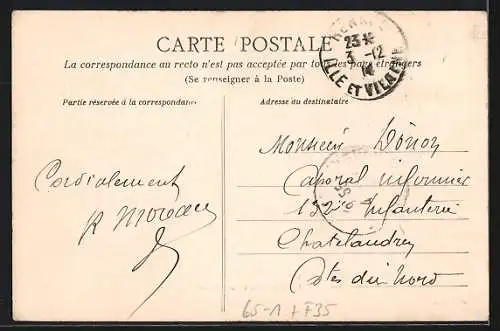 CARTE POSTALE
La correspondance au recto n'est pas acceptée par tous les pays étrangers
(Se renseigner à la Poste)
Partie réservée à la correspondance
Adresse du destinataire
RENNES
23
3 -12
ILLE ET VILAINE
Cordialement
Monsieur
Caporal infirmier
132e Infanterie
Chatelaudren
Côtes du Nord
65-1 + F35